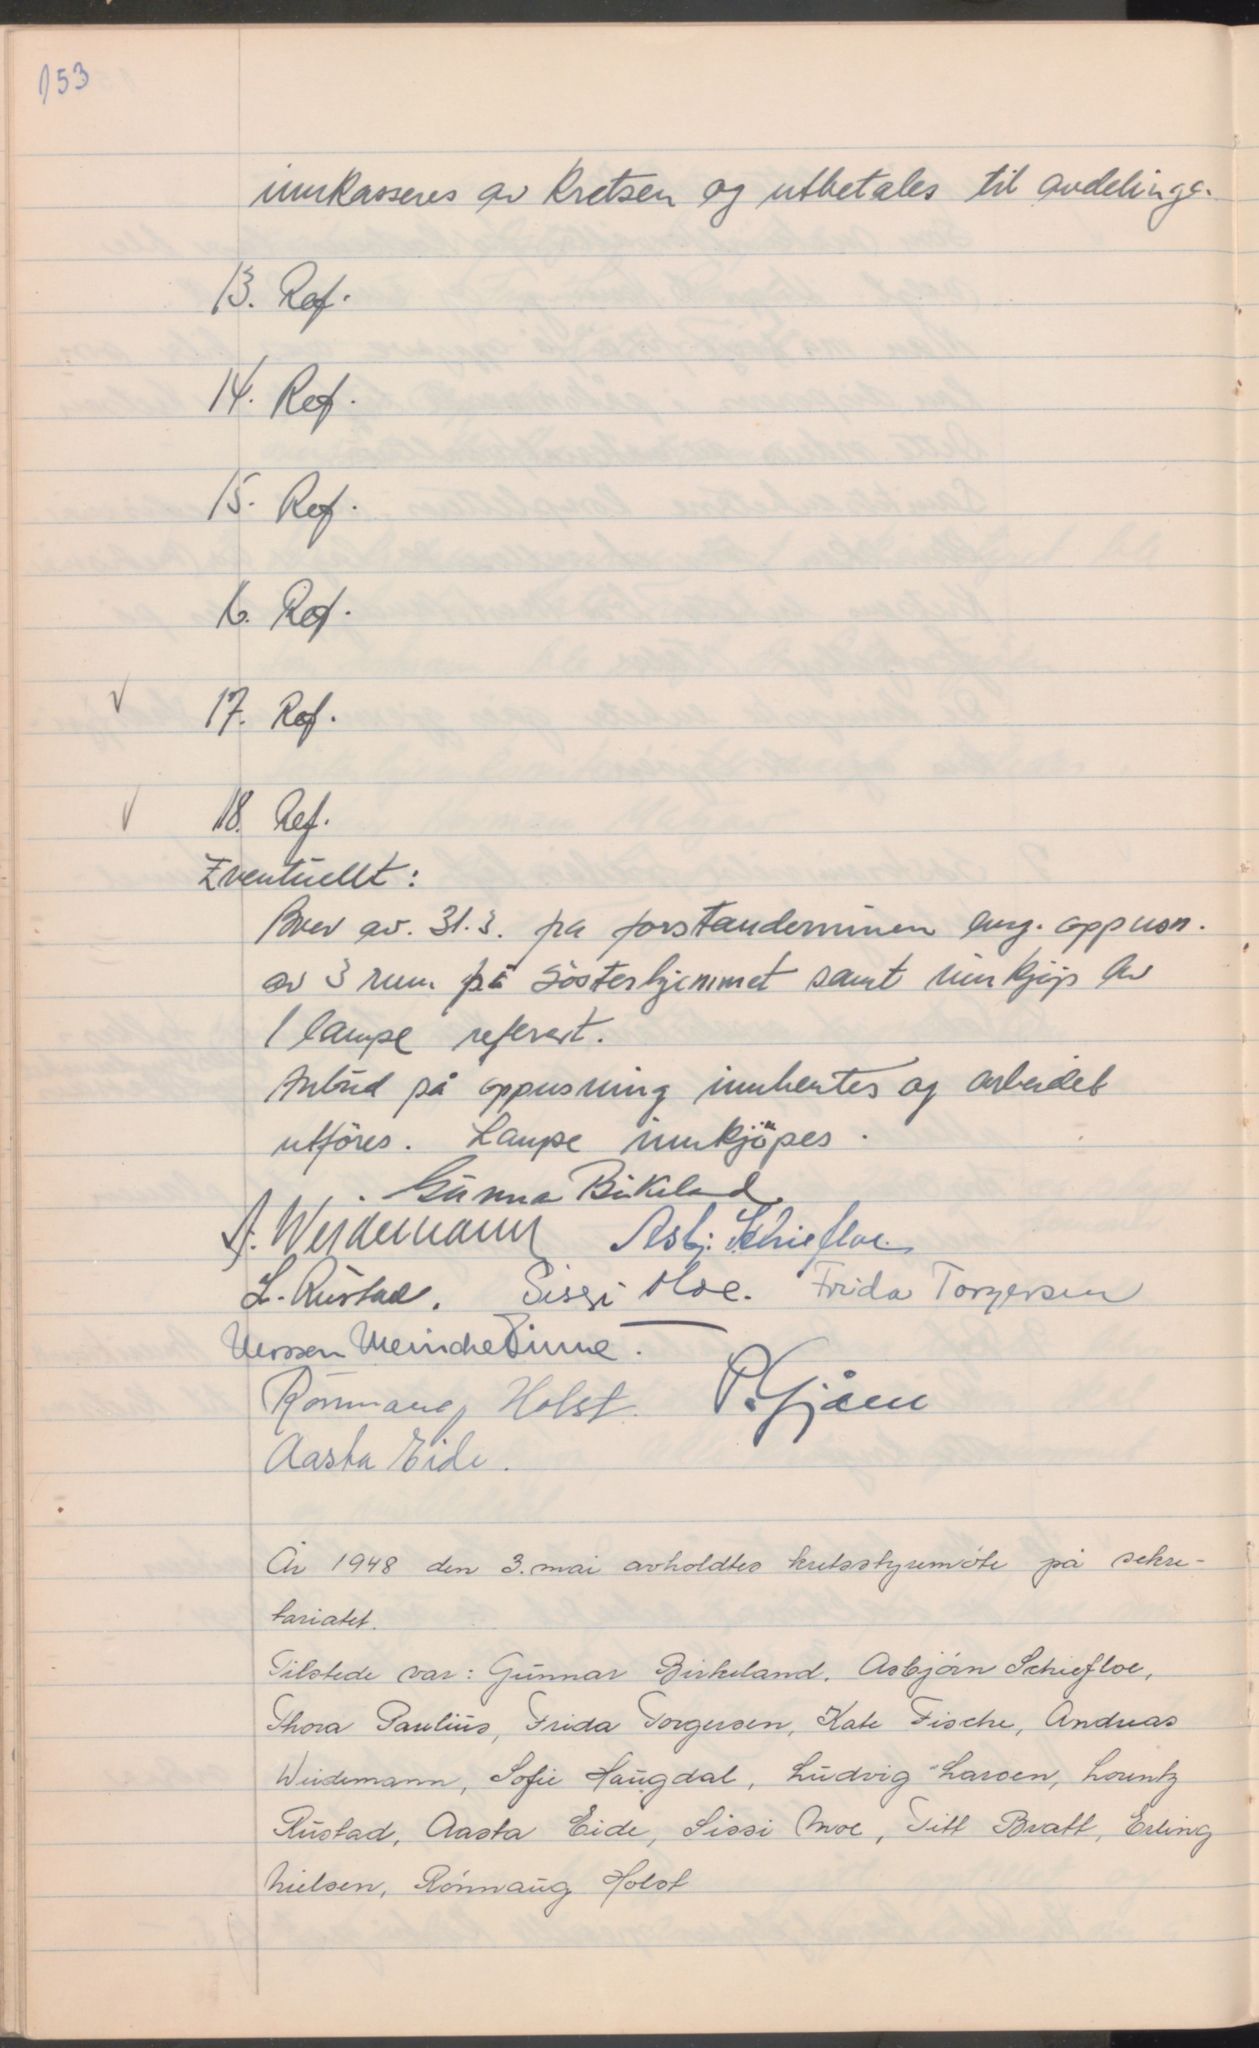 153
innkasseres av kretsen og utbetales til avdelinga.
13. Ref.
14. Ref.
15. Ref.
16. Ref.
√ 17. Ref.
√ 18. Ref.
Eventuellt:
Brev av. 31.3. fra forstanderinnen ang. oppusn.
av 3 rum på Søsterhjemmet samt innkjøp av
1 lampe referert.
Anbud på oppusning innhentes og arbeidet
utføres. Lampe innkjøpes.
Gunnar Birkeland
A. Weidemann Asbj. Schiefloe.
L. Rustad. Sissi Moe. Frida Torgersen
Meincke
Rönnaug Holst.
Aasta Eide.
År 1948 den 3. mai avholdtes kretsstyremöte på sekre-
tariatet.
Tilstede var: Gunnar Birkeland, Asbjörn Schiefloe,
Thora Paulius, Frida Torgersen, Kate Fische, Andreas
Weidemann, Sofie Haugdal, Ludvig Larsen, Lorentz
Rustad, Aasta Eide, Sissi Moe, Titt Bratt, Erling
Nielsen, Rönnaug Holst